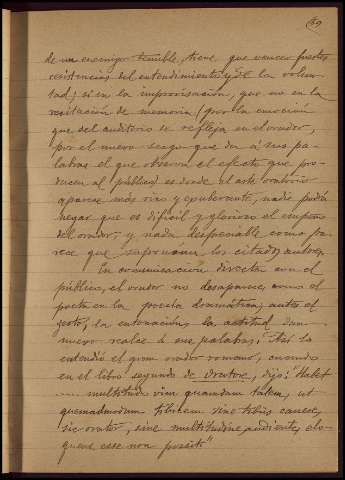 49
de un enemigo temible, tiene que vencer fuertes
resistencias del entendimiento y de la volun-
tad; si en la improvisación, que no en la
recitación de memoria, (por la emoción
que del auditorio se refleja en el orador,
por el nuevo sesgo que da á sus pa-
labras el que observa el efecto que pro-
ducen al público) es donde el arte oratorio
aparece más vivo y exuberante, nadie podrá
negar que es difícil y glorioso el empeño
del orador, y nada despreciable como pa-
rece que suponían los citados autores.
En comunicación directa con el
público, el orador no desaparece, como el
poeta en la poesía dramática; antes el
gesto, la entonación, la actitud dan
nuevo realce á sus palabras. Así lo
entendió el gran orador romano, cuando
en el libro segundo de Oratore, dijo: "Habet
multitudo vim quandam talem, ut
quemadmodum tibicen sine tibiis canere,
sic orator, sine multitudine audiente, elo-
quens esse non possit"